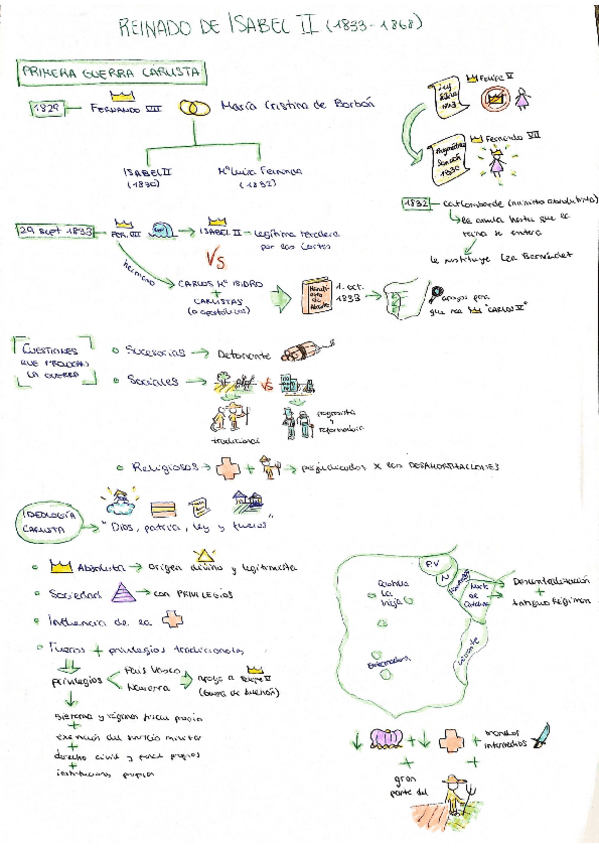 REINADO DE ISABEL II (1833-1868)
PRIMERA GUERRA CARLISTA
1829 FERNANDO VII María Cristina de Borbón
ISABEL II
(1830)
Mª Luisa Fernanda
(1832)
Ley
Sálica
1713
Felipe V
Pragmática
Sanción
1830
Fernando VII
1832
la anula hasta que la
reina se entera
le sustituye Cea Bermúdez
29 sept 1833 FER. VII → ISABEL II - legítima heredera
por las Cortes
VS
hermano
CARLOS Mª ISIDRO
+
CARLISTAS
(o apostólicos)
1. oct.
1833
apoyos para
que sea CARLOS V
CUESTIONES
LA GUERRA
Sucesorias → Detonante
Sociales → VS
tradicional
progresista
y
reformadora
Religiosas → + → perjudicados x las DESAMORTIZACIONES
IDEOLOGÍA
CARLISTA
"Dios, patria, ley y fueros"
Absoluta → Origen divino y legitimista
Sociedad → con PRIVILEGIOS
Influencia de la
Fueros + privilegios tradicionales
privilegios
País Vasco
Navarra
apoyo a Felipe V
(Guerra de Sucesión)
sistema y régimen fiscal propio
+
exención del servicio militar
+
derecho civil y penal propios
+
instituciones propias
P.V
N
Castilla
La
Vieja
Norte
de
Cataluña
Extremadura
Levante
+
Antiguo Régimen
↓ + ↓ +
+ +
gran
parte del